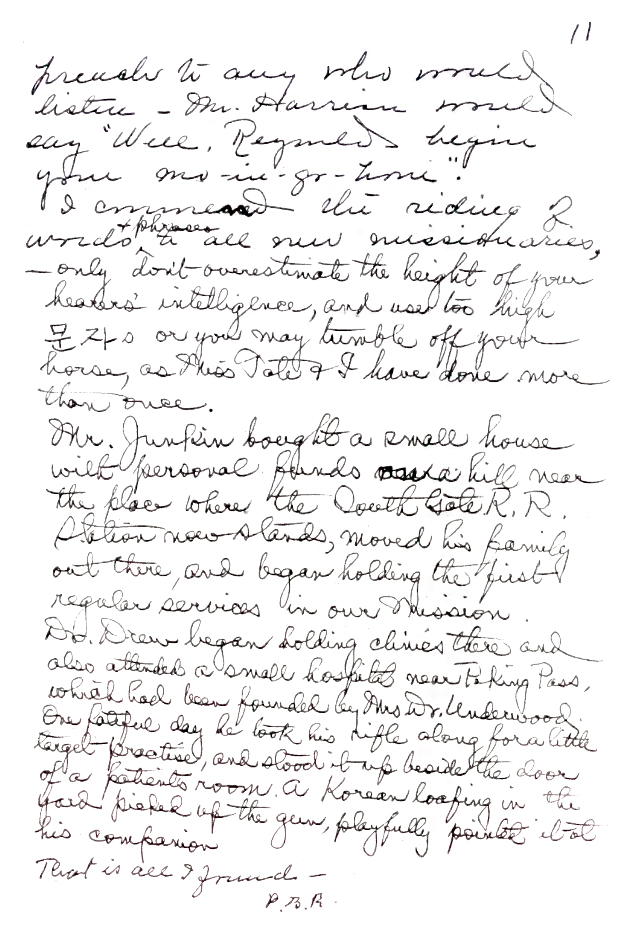 11
preach to any who would
listen – Mr. Harrison would
say "Well, Reynolds begin
your mo-in-go-honi".
I commend the riding of
words + phrases to all new missionaries,
– only don't overestimate the height of your
hearers' intelligence, and use too high
문자s or you may tumble off your
horse, as Miss Tate & I have done more
than once.
Mr. Junkin bought a small house
with personal funds on a hill near
the place where the South Gate R.R.
Station now stands, moved his family
out there, and began holding the first
regular services in our Mission.
Dr. Drew began holding clinics there and
also attended a small hospital near Peking Pass,
which had been founded by Mrs. Dr. Underwood.
One fateful day he took his rifle along for a little
target practise, and stood it up beside the door
of a patient's room. A Korean loafing in the
yard picked up the gun, playfully pointed it at
his companion
That is all I found –
P.B.R.